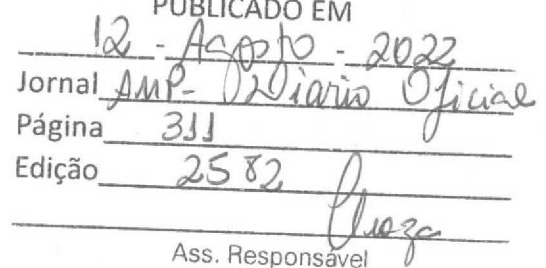 PUBLICADO EM
12 - Agosto - 2022
Jornal AMP- Diario Oficial
Página 311
Edição 2582
Ass. Responsável